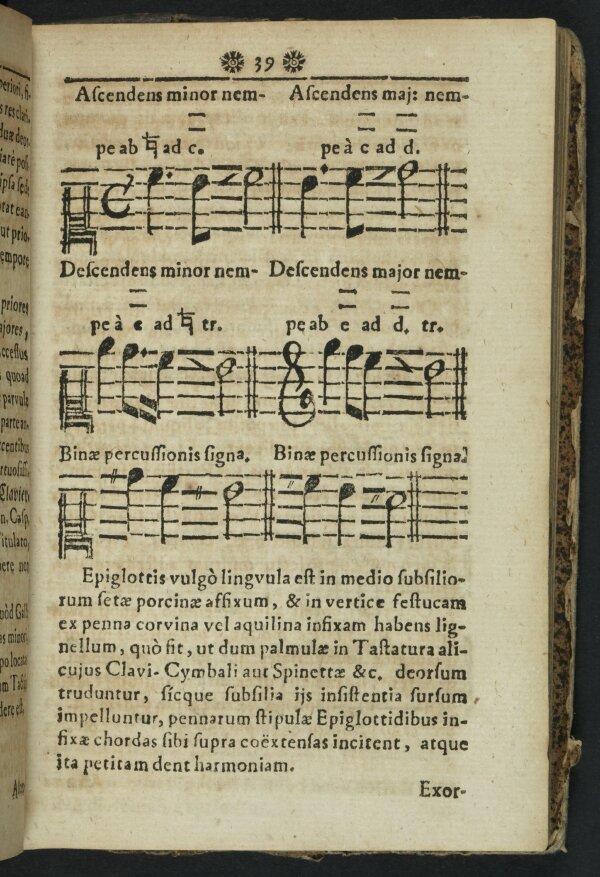 39
Aſcendens minor nem- Aſcendens maj: nem-
pe ab ♮ ad c. pe à c ad d.
Deſcendens minor nem- Deſcendens major nem-
pe à c ad ♮ tr. pe ab e ad d. tr.
Binæ percuſſionis ſigna. Binæ percuſſionis ſigna.
Epiglottis vulgò lingvula eſt in medio ſubſilio-
rum ſetæ porcinæ affixum, & in vertice feſtucam
ex penna corvina vel aquilina infixam habens lig-
nellum, quò fit, ut dum palmulæ in Taſtatura ali-
cujus Clavi- Cymbali aut Spinettæ &c. deorſum
truduntur, ſicque ſubſilia ijs inſiſtentia ſurſum
impelluntur, pennarum ſtipulæ Epiglottidibus in-
fixæ chordas ſibi ſupra coëxtenſas incitent, atque
ita petitam dent harmoniam.
Exor-
priores
ajores,
quoad
parvula
Claviere
n. Caſp.
Titulato,